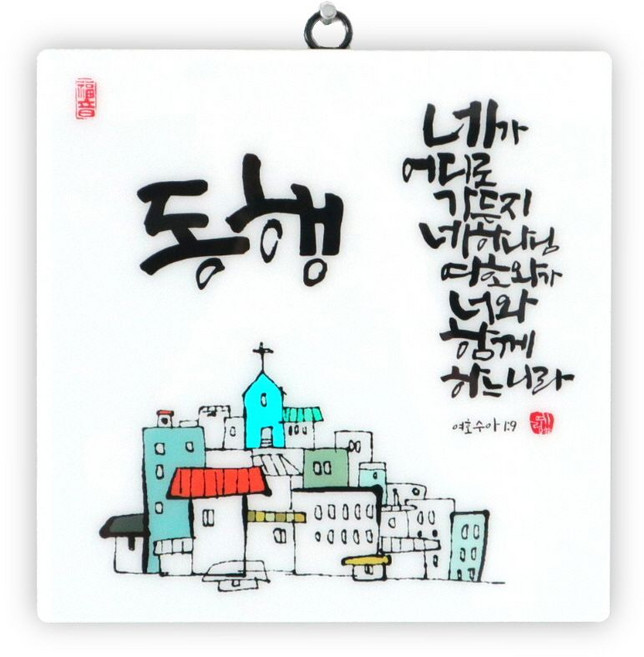 福音
동행
네가
어디로
가든지
네 하나님
여호와가
너와
함께
하느니라
여호수아 1:9